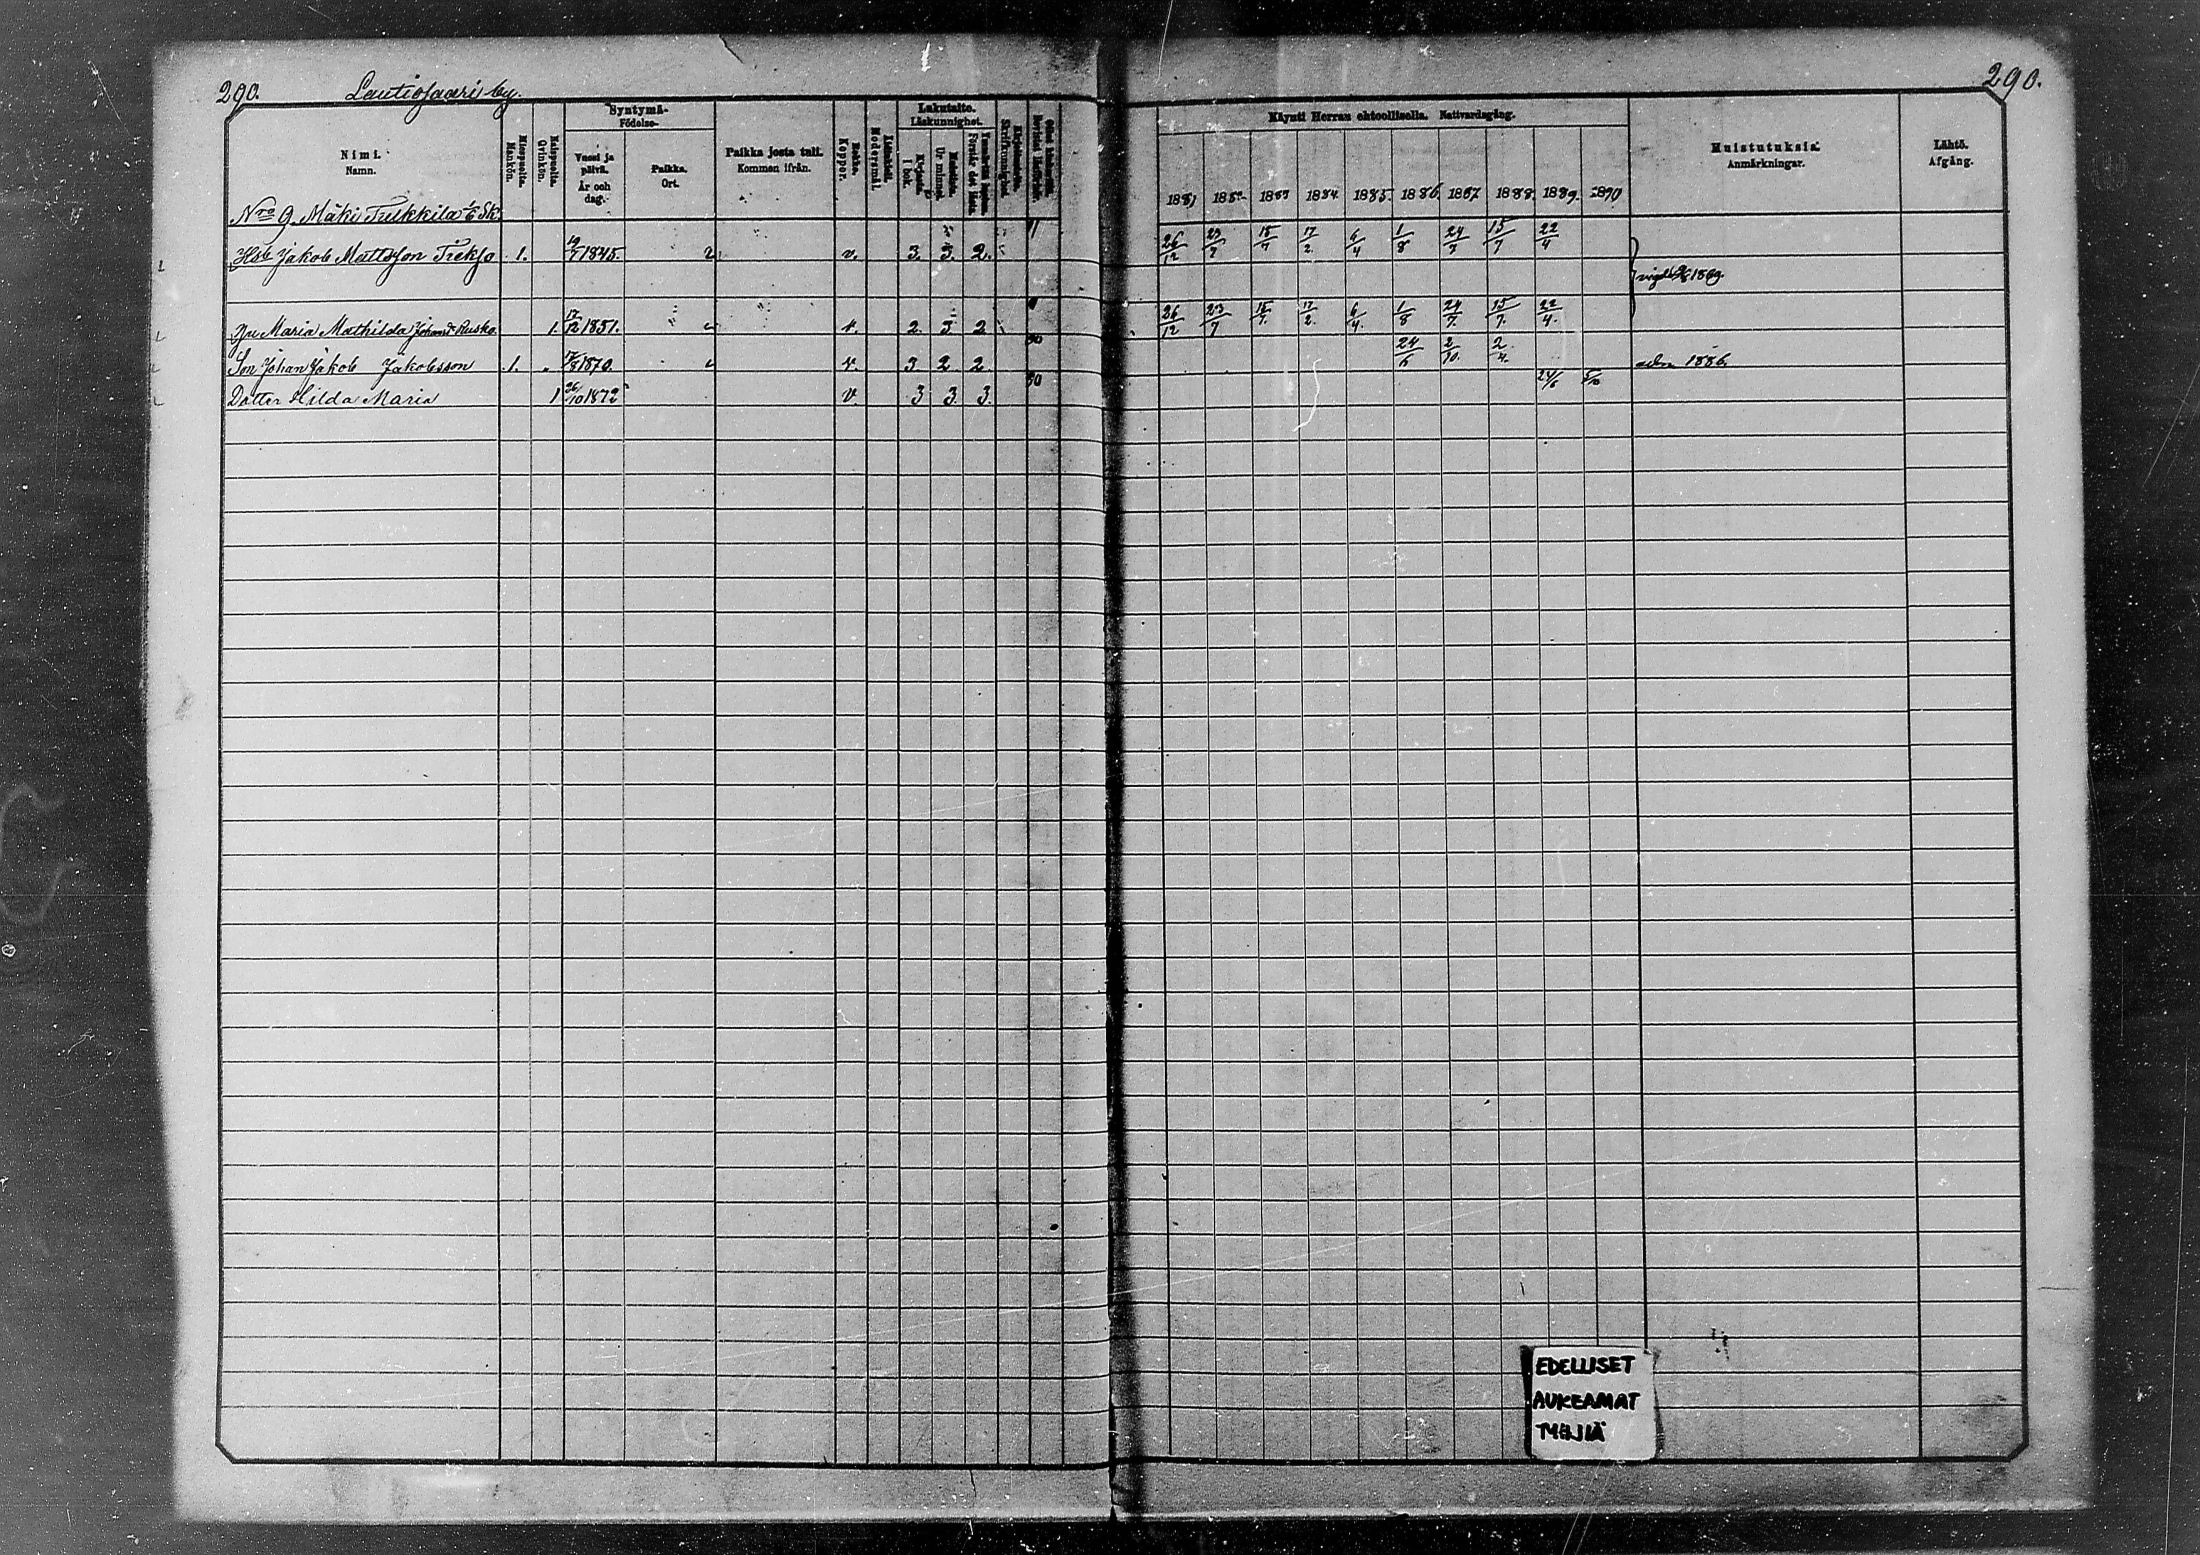 290. Lautiosaari by. 290.
Nimi. Namn.
Miespuolta. Mankön.
Naispuolta. Qvinkön.
Syntymä- Födelse-
Vuosi ja päivä. År och dag.
Paikka. Ort.
Paikka josta tuli. Kommen ifrån.
Rokko. Koppor.
Modersmål.
Lukutaito. Läskunnighet.
I bok.
Ur minnet.
Förstår det lästa.
Skrifkunnighet.
Käynti Herran ehtoollisella. Nattvardsgång.
1881 1882 1883 1884. 1885. 1886. 1887 1888. 1889. 1890
Muistutuksia. Anmärkningar.
Lähtö. Afgång.
Nro 9. Mäki 1/6 Sk.
Hsb Jakob Mattsson 1. 19/7 1845. v. 3. 3. 2. 26/12 23/7 15/7 17/2 6/4 1/8 24/7 15/7 22/4
vigde 1869
Hu Maria Mathilda Johansdr Rusko 1. 17/12 1851. v. 2. 3 2 26/12 23/7 15/7. 17/2. 6/4. 1/8 24/7. 15/7. 22/4.
Son Johan Jakob Jakobsson 1. 1870. v. 3 2 2 24/6 2/10. 2/4. adm 1886.
Dotter Hilda Maria 1 26/10 1872 v. 3 3. 3. 24/6 5/10
EDELLISET
AUKEAMAT
TYHJIÄ